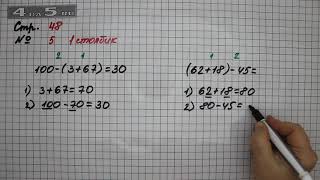 4 на 5.ru
Стр. 48
№ 5 1 столбик
2 1
100-(3+67)=30
1) 3+67=70
2) 100-70=30
1 2
(62+18)-45=
1) 62+18=80
2) 80-45=